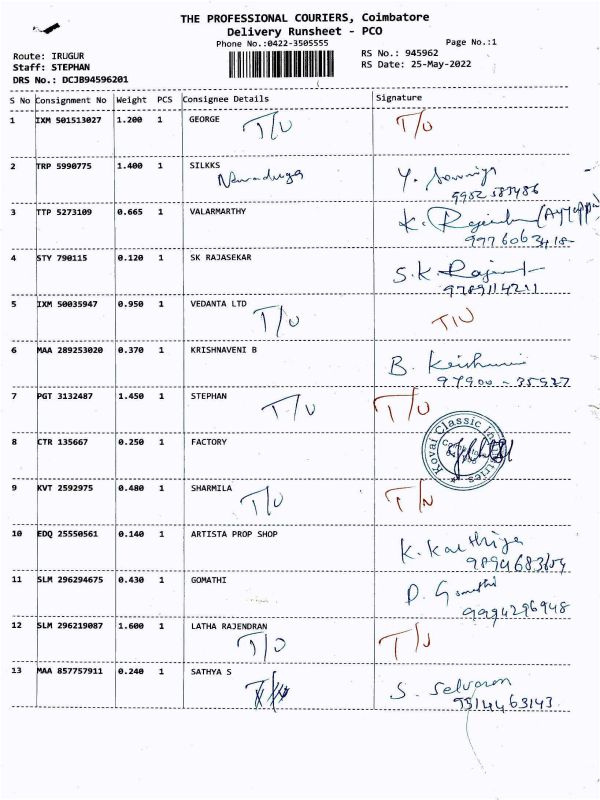 THE PROFESSIONAL COURIERS, Coimbatore
Delivery Runsheet - PCO
Phone No.:0422-3505555 Page No.:1
Route: IRUGUR RS No.: 945962
Staff: STEPHAN RS Date: 25-May-2022
DRS No.: DCJB94596201
S No Consignment No Weight PCS Consignee Details Signature
1 IXM 501513027 1.200 1 GEORGE T/U T/U
2 TRP 5990775 1.400 1 SILKKS
9952583486
3 TTP 5273109 0.665 1 VALARMARTHY K.
9776063418
4 STY 790115 0.120 1 SK RAJASEKAR S.K.
9789114211
5 IXM 50035947 0.950 1 VEDANTA LTD T/U T/U
6 MAA 289253020 0.370 1 KRISHNAVENI B B.
97900-35927
7 PGT 3132487 1.450 1 STEPHAN T/U T/U
8 CTR 135667 0.250 1 FACTORY Kovai Classic Industries
9 KVT 2592975 0.480 1 SHARMILA T/U T/U
10 EDQ 25550561 0.140 1 ARTISTA PROP SHOP K. Karthiga
11 SLM 296294675 0.430 1 GOMATHI Gomathi
9994296948
12 SLM 296219087 1.600 1 LATHA RAJENDRAN T/U T/U
13 MAA 857757911 0.240 1 SATHYA S S. Selvaran